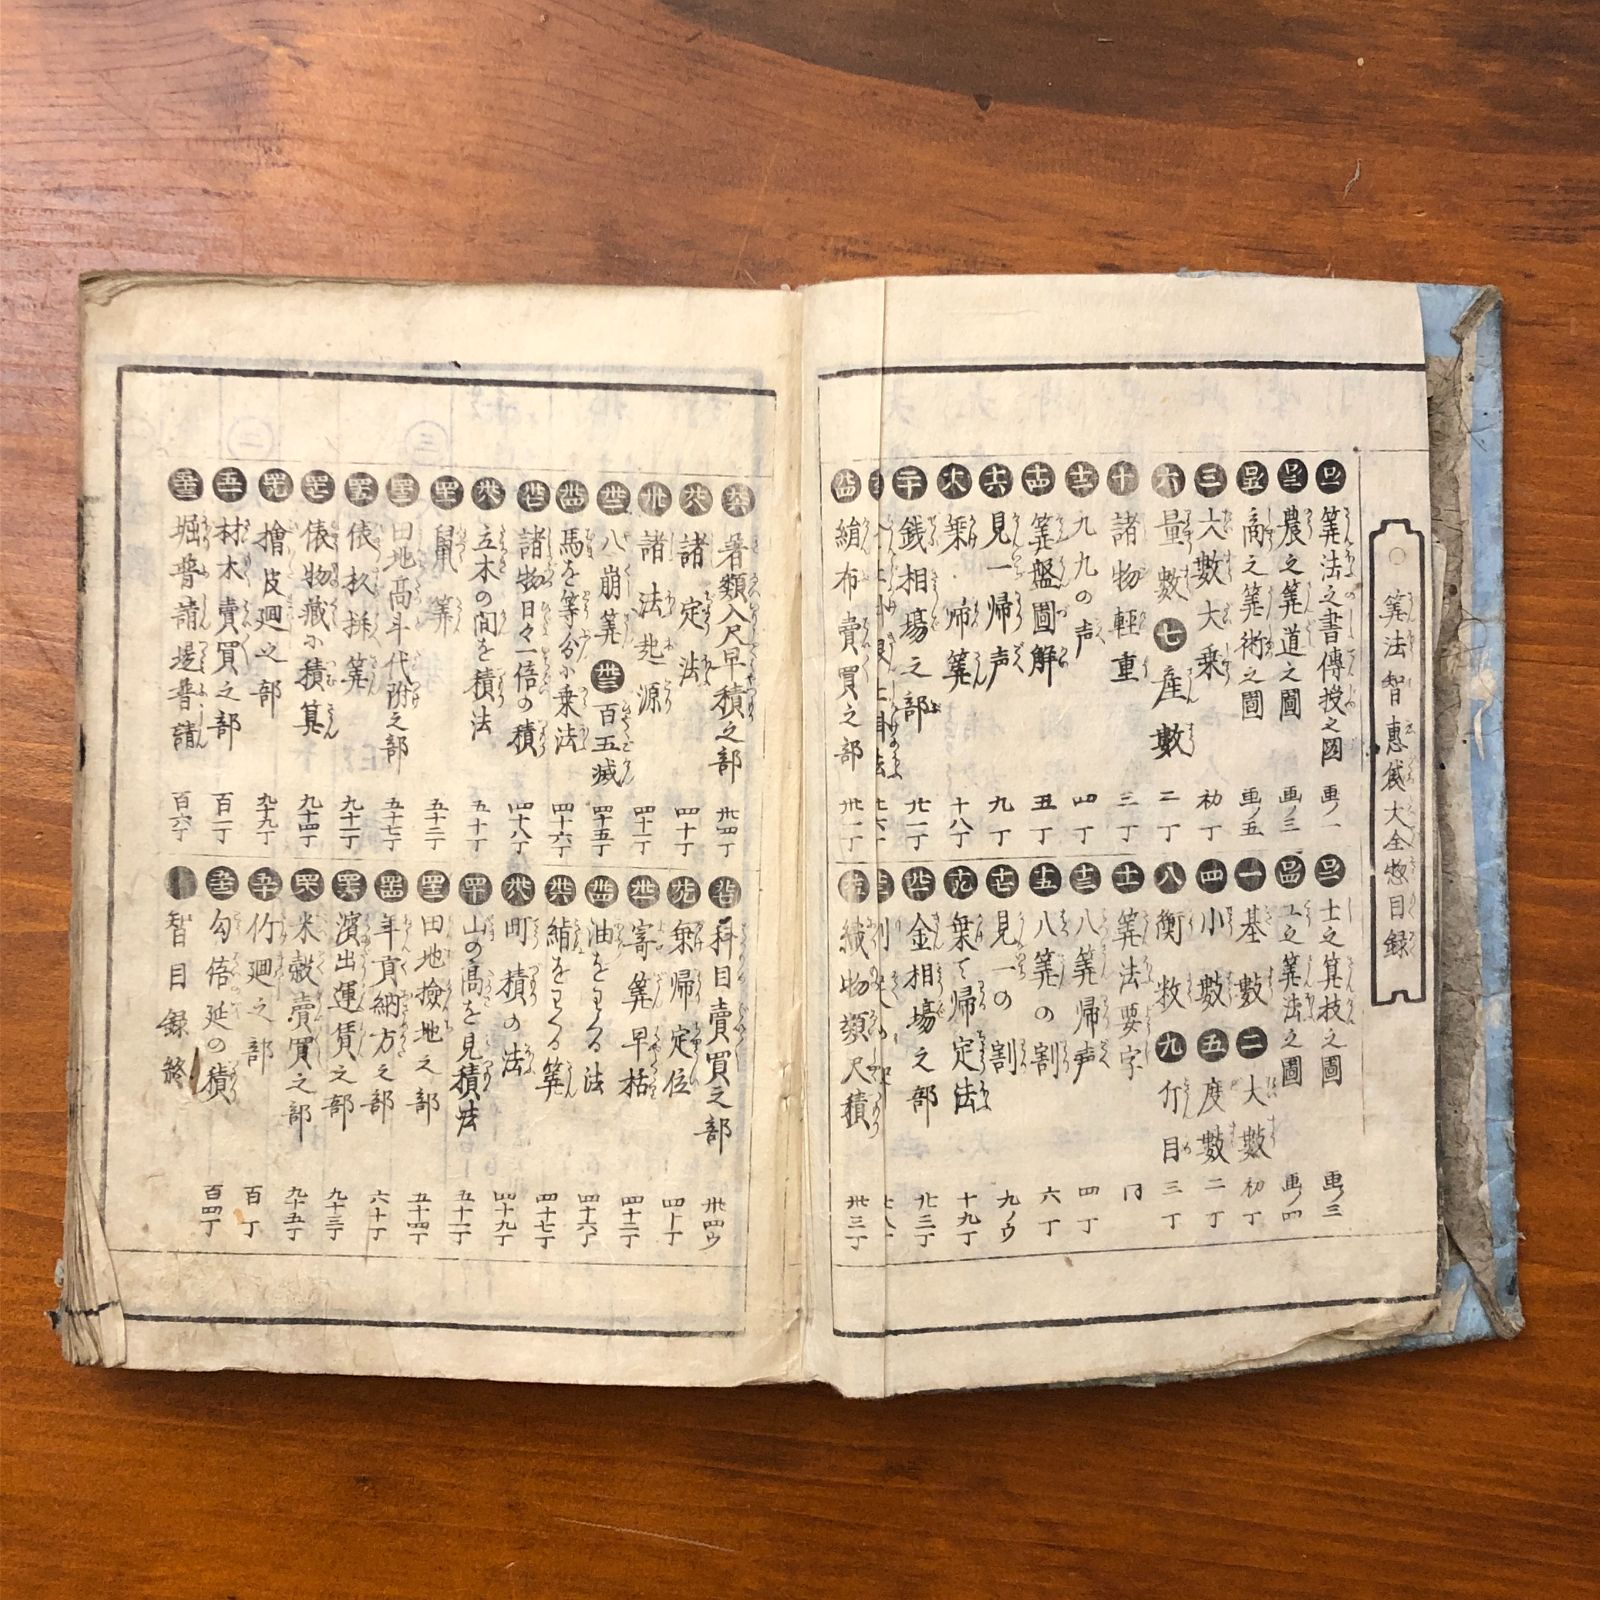 ○算法智惠袋大全惣目録
口ノ一 算法之書傳授之図 画ノ一
口ノ二 士之算技之圖 画ノ三
口ノ三 農之算道之圖 画ノ三
口ノ四 工之算法之圖 画ノ四
口ノ五 商之算術之圖 画ノ五
一 基數 二 大數 初丁
三 大數大乗 初丁
四 小數 五 度數 二丁
六 量數 七 産數 二丁
八 衡数 九 斤目 三丁
十 諸物輕重 三丁
十一 算法要字 同
十二 九九の声 四丁
十三 八算帰声 四丁
十四 算盤圖解 五丁
十五 八算の割 六丁
十六 見一帰声 九丁
十七 見一の割 九ノウ
十八 乗帰算 十八丁
十九 乗て帰定法 十九丁
二十 銭相場之部 廿一丁
金相場之部 廿三丁
絹布賣買之部 卅一丁
織物類尺積 卅三丁
着類入尺早積之部 卅四丁
蒔目賣買之部 卅四ウ
諸定法 四十丁
乗帰定位 四十丁
諸法起源 四十一丁
寄算早括 四十二丁
八崩算 百五减 四十五丁
油をわる法 四十六丁
馬を等分に乗法 四十六丁
絹をわる算 四十七丁
諸物日々一倍の積 四十八丁
町積の法 四十九丁
立木の間を積法 五十丁
山の高を見積法 五十一丁
鼠算 五十二丁
田地撿地之部 五十四丁
田地高斗代附之部 五十七丁
年貢納方之部 六十丁
俵杉採算 九十一丁
濱出運賃之部 九十三丁
俵物藏に積算 九十四丁
米穀賣買之部 九十五丁
檜皮廻之部 九十九丁
竹廻之部 百丁
材木賣買之部 百一丁
勾倍延の積 百四丁
堀普請堤普請 百六丁
智目録終